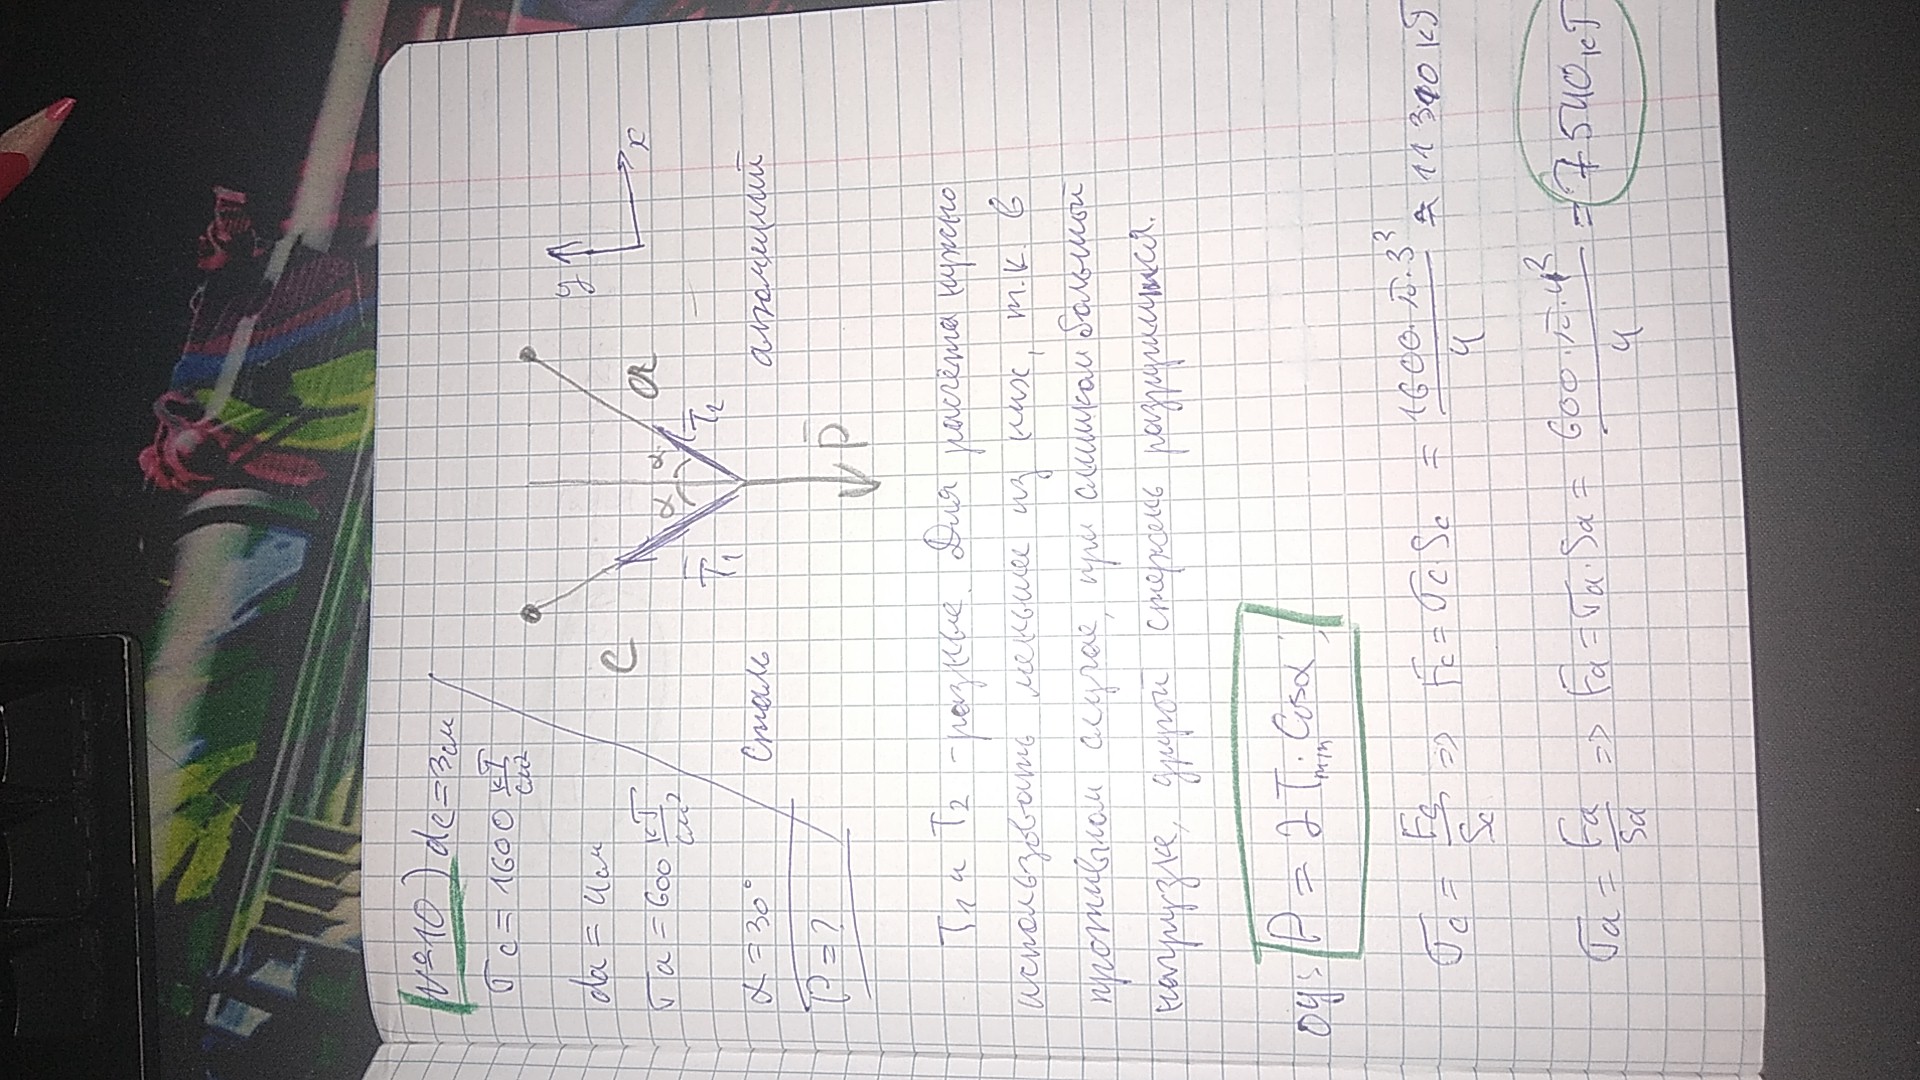 №10) dc = 3см
σc = 1600 кГ/см²
dа = 4см
σа = 600 кГ/см²
α = 30°
P = ?
C
α α
a
T̄₁
T̄₂
y
x
сталь
алюминий
P̄
T₁ и T₂ - разные. Для расчёта нужно
использовать меньшее из них, т.к. в
противном случае, при слишком большой
нагрузке, другой стержень разрушится.
оу: P = 2 Tmin · Cosα;
σc = Fc/Sc => Fc = σc Sc = 1600·π·3²/4 ≈ 11310 кГ
σa = Fa/Sa => Fa = σa·Sa = 600·π·4²/4 = 7540 кГ